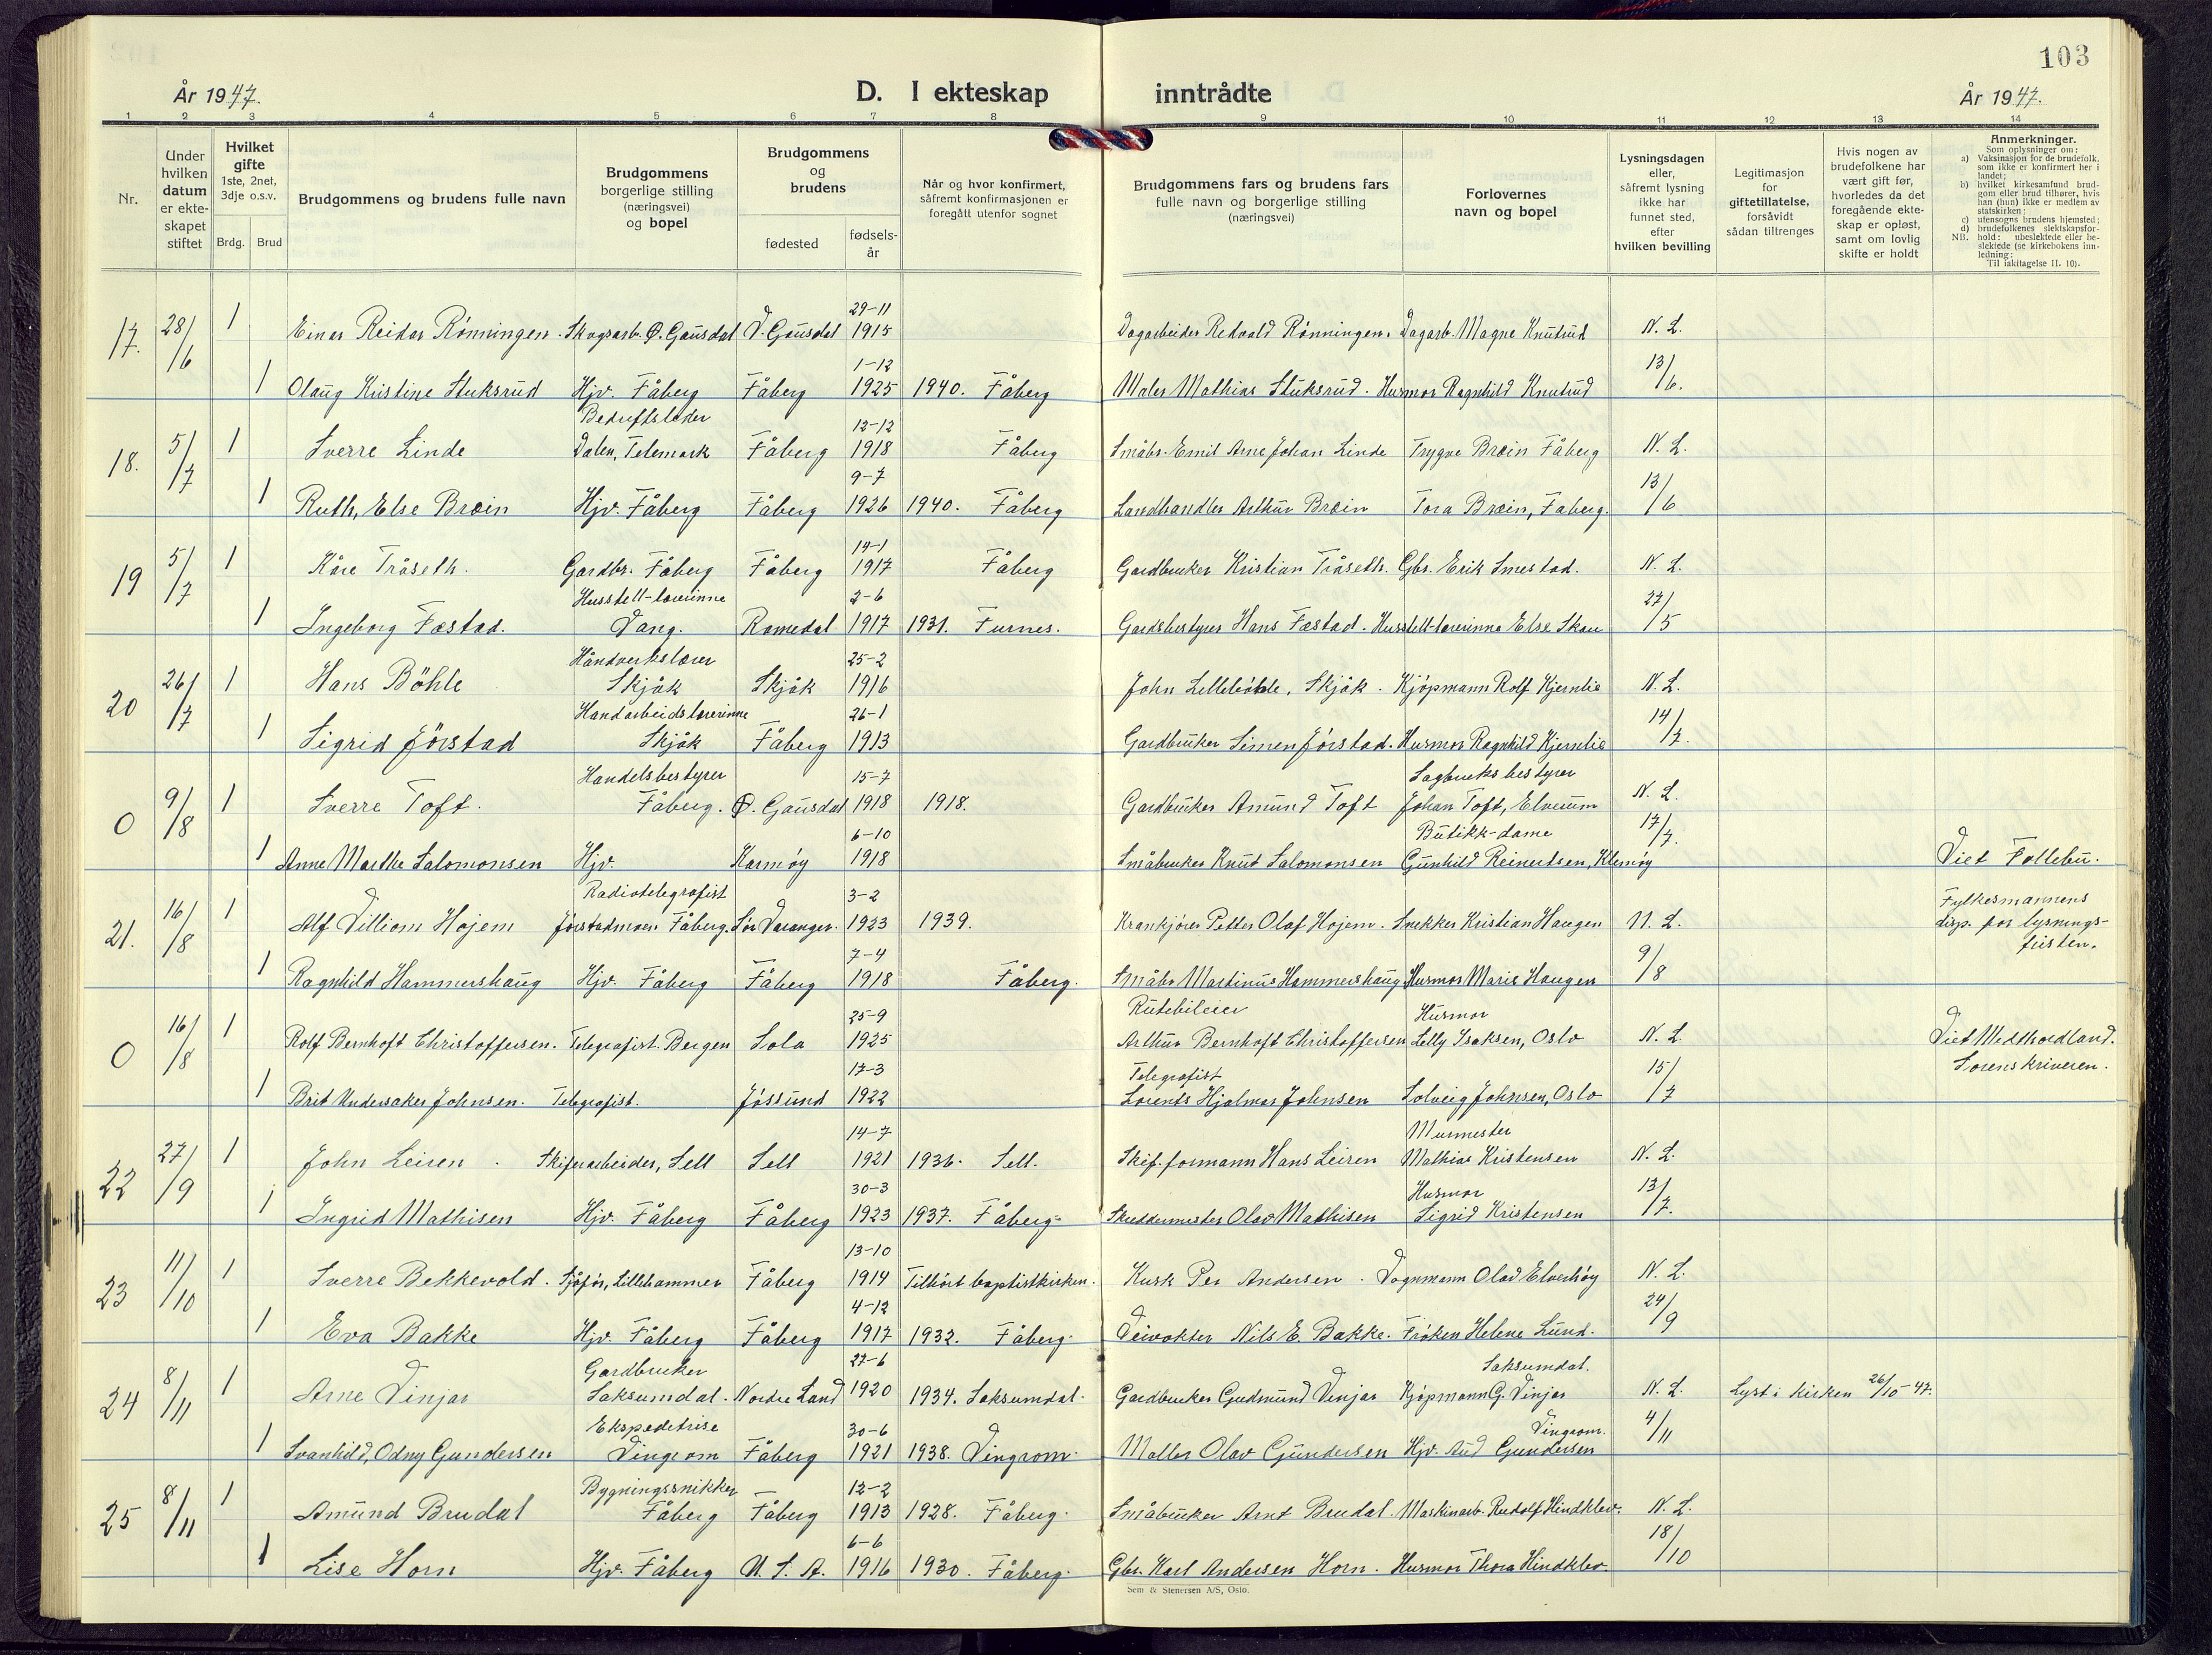 103
År 1947. D. I ekteskap inntrådte År 1947.
1 2 3 4 5 6 7 8 9 10 11 12 13 14
Nr.
Under hvilken datum er ekte- skapet stiftet
Hvilket gifte 1ste, 2net, 3dje o.s.v.
Brdg. Brud
Brudgommens og brudens fulle navn
Brudgommens borgerlige stilling (næringsvei) og bopel
Brudgommens og brudens
fødested
fødsels- år
Når og hvor konfirmert, såfremt konfirmasjonen er foregått utenfor sognet
Brudgommens fars og brudens fars fulle navn og borgerlige stilling (næringsvei)
Forlovernes navn og bopel
Lysningsdagen eller, såfremt lysning ikke har funnet sted, efter hvilken bevilling
Legitimasjon for giftetillatelse, forsåvidt sådan tiltrenges
Hvis nogen av brudefolkene har vært gift før, hvorledes da det foregående ekte- skap er opløst, samt om lovlig skifte er holdt
Anmerkninger.
Som oplysninger om:
a) Vaksinasjon for de brudefolk, som ikke er konfirmert her i landet;
b) hvilket kirkesamfund brud- gom eller brud tilhører, hvis han (hun) ikke er medlem av statskirken;
c) utensogns brudens hjemsted;
d) brudefolkenes slektskapsfor- hold: ubeslektede eller be- slektede (se kirkebokens inn- ledning:
NB.
Til iakttagelse II. 10).
29-11
17. 28/6 1 Einar Reidar Rönningen. Skogsarb. Ø. Gausdal V. Gausdal 1915 Dagarbeider Redvald Rönningen. Dagarb. Magne Knutrud N. L.
1-12 13/6.
1 Olaug Kristine Stuksrud Hjv. Fåberg Fåberg 1925 1940. Fåberg Maler Mathias Stuksrud. Husmor Ragnhild Knutrud
Bedriftsleder 12-12
18. 5/7 1 Sverre Linde Dalen, Telemark Fåberg 1918 Fåberg Småbr. Emil Arne Johan Linde Trygve Bræin Fåberg N. L.
9-7 13/6
1 Ruth, Else Bræin Hjv. Fåberg Fåberg 1926 1940. Fåberg Landhandler Arthur Bræin Tora Bræin, Fåberg.
14-1
19 5/7 1 Kåre Tråseth. Gardbr. Fåberg Fåberg 1917 Fåberg Gardbruker Kristian Tråseth. Gbr. Erik Smestad. N. L.
Husstell-lærerinne 2-6 27/5
1 Ingeborg Fæstad. Vang. Romedal 1917 1931. Furnes. Gardsbestyrer Hans Fæstad. Husstell-lærerinne Else Skau
Håndverkslærer 25-2
20 26/7 1 Hans Böhle Skjåk Skjåk 1916 John Lillebøhle, Skjåk. Kjöpmann Rolf Kjernlie N. L.
Handarbeidslærerinne 26-1 14/7.
1 Sigrid Jörstad Skjåk Fåberg 1913 Gardbruker Simen Jörstad. Husmor Ragnhild Kjernlie
Handelsbestyrer 15-7 Sagbruksbestyrer
0 9/8 1 Sverre Toft. Fåberg. Ø. Gausdal 1918 1918. Gardbruker Amund Toft Johan Toft, Elverum N. L.
6-10 Butikk-dame 17/7.
1 Anne Marthe Salomonsen Hjv. Karmöy 1918 Småbruker Knut Salomonsen Gunhild Reinertsen, Viet Follebu.
Radiotelegrafist 3-2 Fylkesmannens
21. 16/8 1 Alf Villiam Hojem Jörstadmoen Fåberg. Sör Varanger. 1923 1939. Krankjörer Petter Olaf Hojem. Snekker Kristian Haugen N. L. disp. for lysnings-
7-4 9/8 fristen.
1 Ragnhild Hammershaug Hjv. Fåberg Fåberg 1918 Fåberg. Småbr Martinus Hammershaug Husmor Marie Haugen
25-9 Rutebileier Husmor
0 16/8 1 Rolf Bernhoft Christoffersen. Telegrafist. Bergen Sola 1925 Arthur Bernhoft Christoffersen Lilly Isaksen, Oslo N. L. Viet Midthordland.
17-3 Telegrafist 15/7 Sorenskriveren.
1 Brit Undersaker Johnsen. Telegrafist. Jössund 1922 Lorents Hjalmar Johnsen Solveig Johnsen, Oslo
14-7 Murmester
22 27/9 1 John Leiren. Skiferarbeider, Sell Sell 1921 1936. Sell. Skif. formann Hans Leiren Mathias Kristensen N. L.
30-3 Husmor 13/7.
1 Ingrid Mathisen Hjv. Fåberg Fåberg 1923 1937. Fåberg- Skreddermester Olav Mathisen Sigrid Kristensen
13-10
23 11/10 1 Sverre Bekkevold. Sjåför, Lillehammer Fåberg 1914 Tilhört baptistkirken. Kusk Per Andersen. Vognmann Olav Elverhöy N. L.
4-12 24/9
1 Eva Bakke Hjv. Fåberg Fåberg 1917 1932. Fåberg. Veivokter Nils E. Bakke. Fröken Helene Lund.
Gardbruker 27-6 Saksumdal.
24 8/11 1 Arne Vinjar Saksumdal. Nordre Land 1920 1934. Saksumdal. Gardbruker Gudmund Vinjar Kjöpmann G. Vinjar N. L. Lyst i kirken 26/10-47.
Ekspeditrise 30-6 Vingrom. 4/11
1 Svanhild, Odny Gundersen Vingrom Fåberg 1921 1938. Vingrom. Møller Olav Gundersen Hjv. Aud Gundersen
Bygningssnikker 12-2
25 8/11 1 Amund Brudal Fåberg Fåberg 1913 1928. Fåberg. Småbruker Arnt Brudal. Maskinarb. Rudolf Hindklev. N. L.
6-6 18/10
1 Lise Horn Hjv. Fåberg U. S. A. 1916 1930. Fåberg. Gbr. Karl Andersen Horn. Husmor Thora Hindklev.
Sem & Stenersen A/S, Oslo.